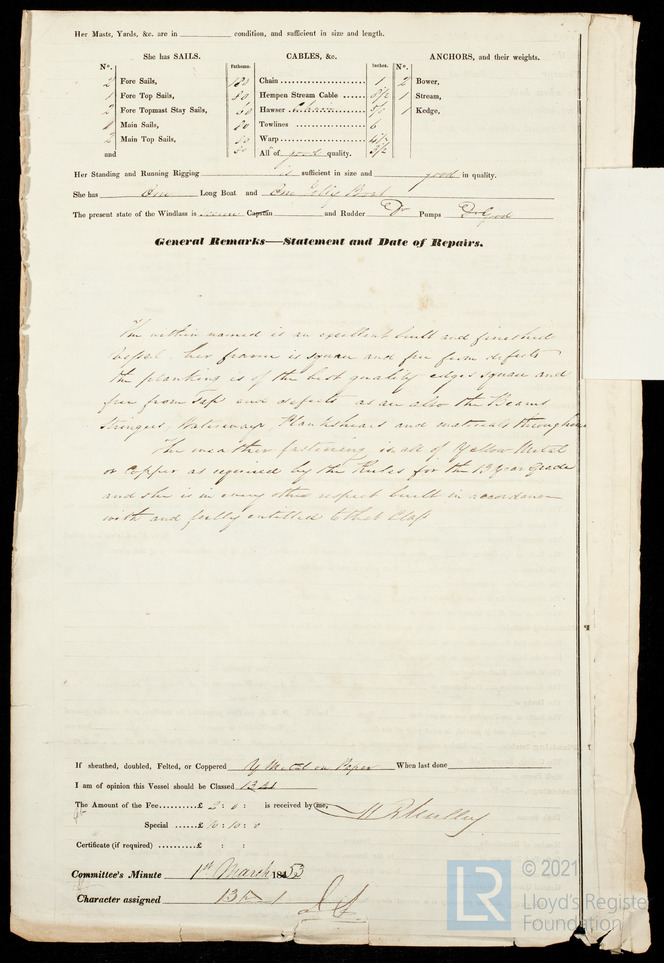 Her Masts, Yards, &c. are in condition, and sufficient in size and length.
She has SAILS. CABLES, &c. ANCHORS, and their weights.
No. Fathoms. Inches. No.
2 Fore Sails, Chain 1 2 Bower,
1 Fore Top Sails, 80 Hempen Stream Cable 8/2 1 Stream,
2 Fore Topmast Stay Sails, 60 Hawser Chain 1 Kedge,
1 Main Sails, 80 Towlines 6
2 Main Top Sails, Warp
and All of good quality.
Her Standing and Running Rigging is sufficient in size and good in quality.
She has One Long Boat and One Boat
The present state of the Windlass is Capstan and Rudder Do Pumps Do Good
General Remarks—Statement and Date of Repairs.
The within named is an excellent built and finished
Vessel. her frame is square and free from defects
the planking is of the best quality edges square and
free from Sap and defects as are also the Beams
Stringers, Waterways Planksheers and materials throughout
The weather fastening is all of Yellow Metal
or Copper as required by the Rules for the 13 Year Grade
and she is in every other respect built in accordance
with and fully entitled to that Class
If sheathed, doubled, Felted, or Coppered Y Metal on Paper When last done
I am of opinion this Vessel should be Classed 13 A1
The Amount of the Fee..........£ 2 : 0 : is received by me,
Special ......£ 10 : 10 : 0
Certificate (if required) ..........£ : :
Committee's Minute 1st March 1853
Character assigned 13 A 1
LR
© 2021
Lloyd's Register
Foundation